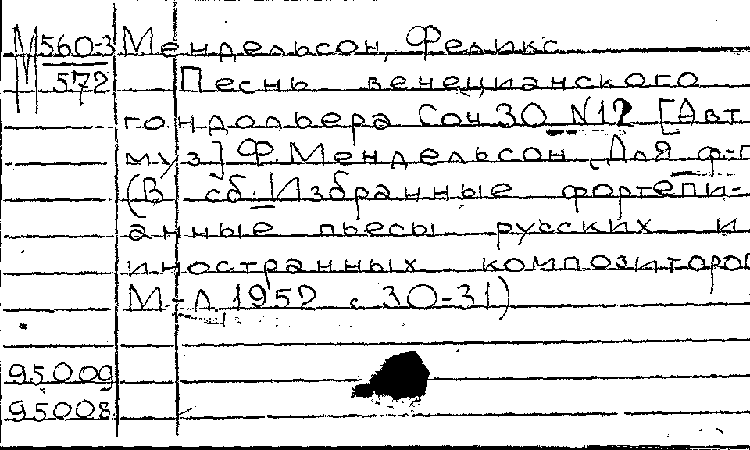 М 560-3 Мендельсон, Феликс
572 Песнь венецианского
гондольера Соч 30 N12 [Авт
муз] Ф. Мендельсон. Для ф-п
(В сб: Избранные фортепи-
анные пьесы русских и
иностранных композиторов
М-Л 1952 с. 30-31)
95009
95008